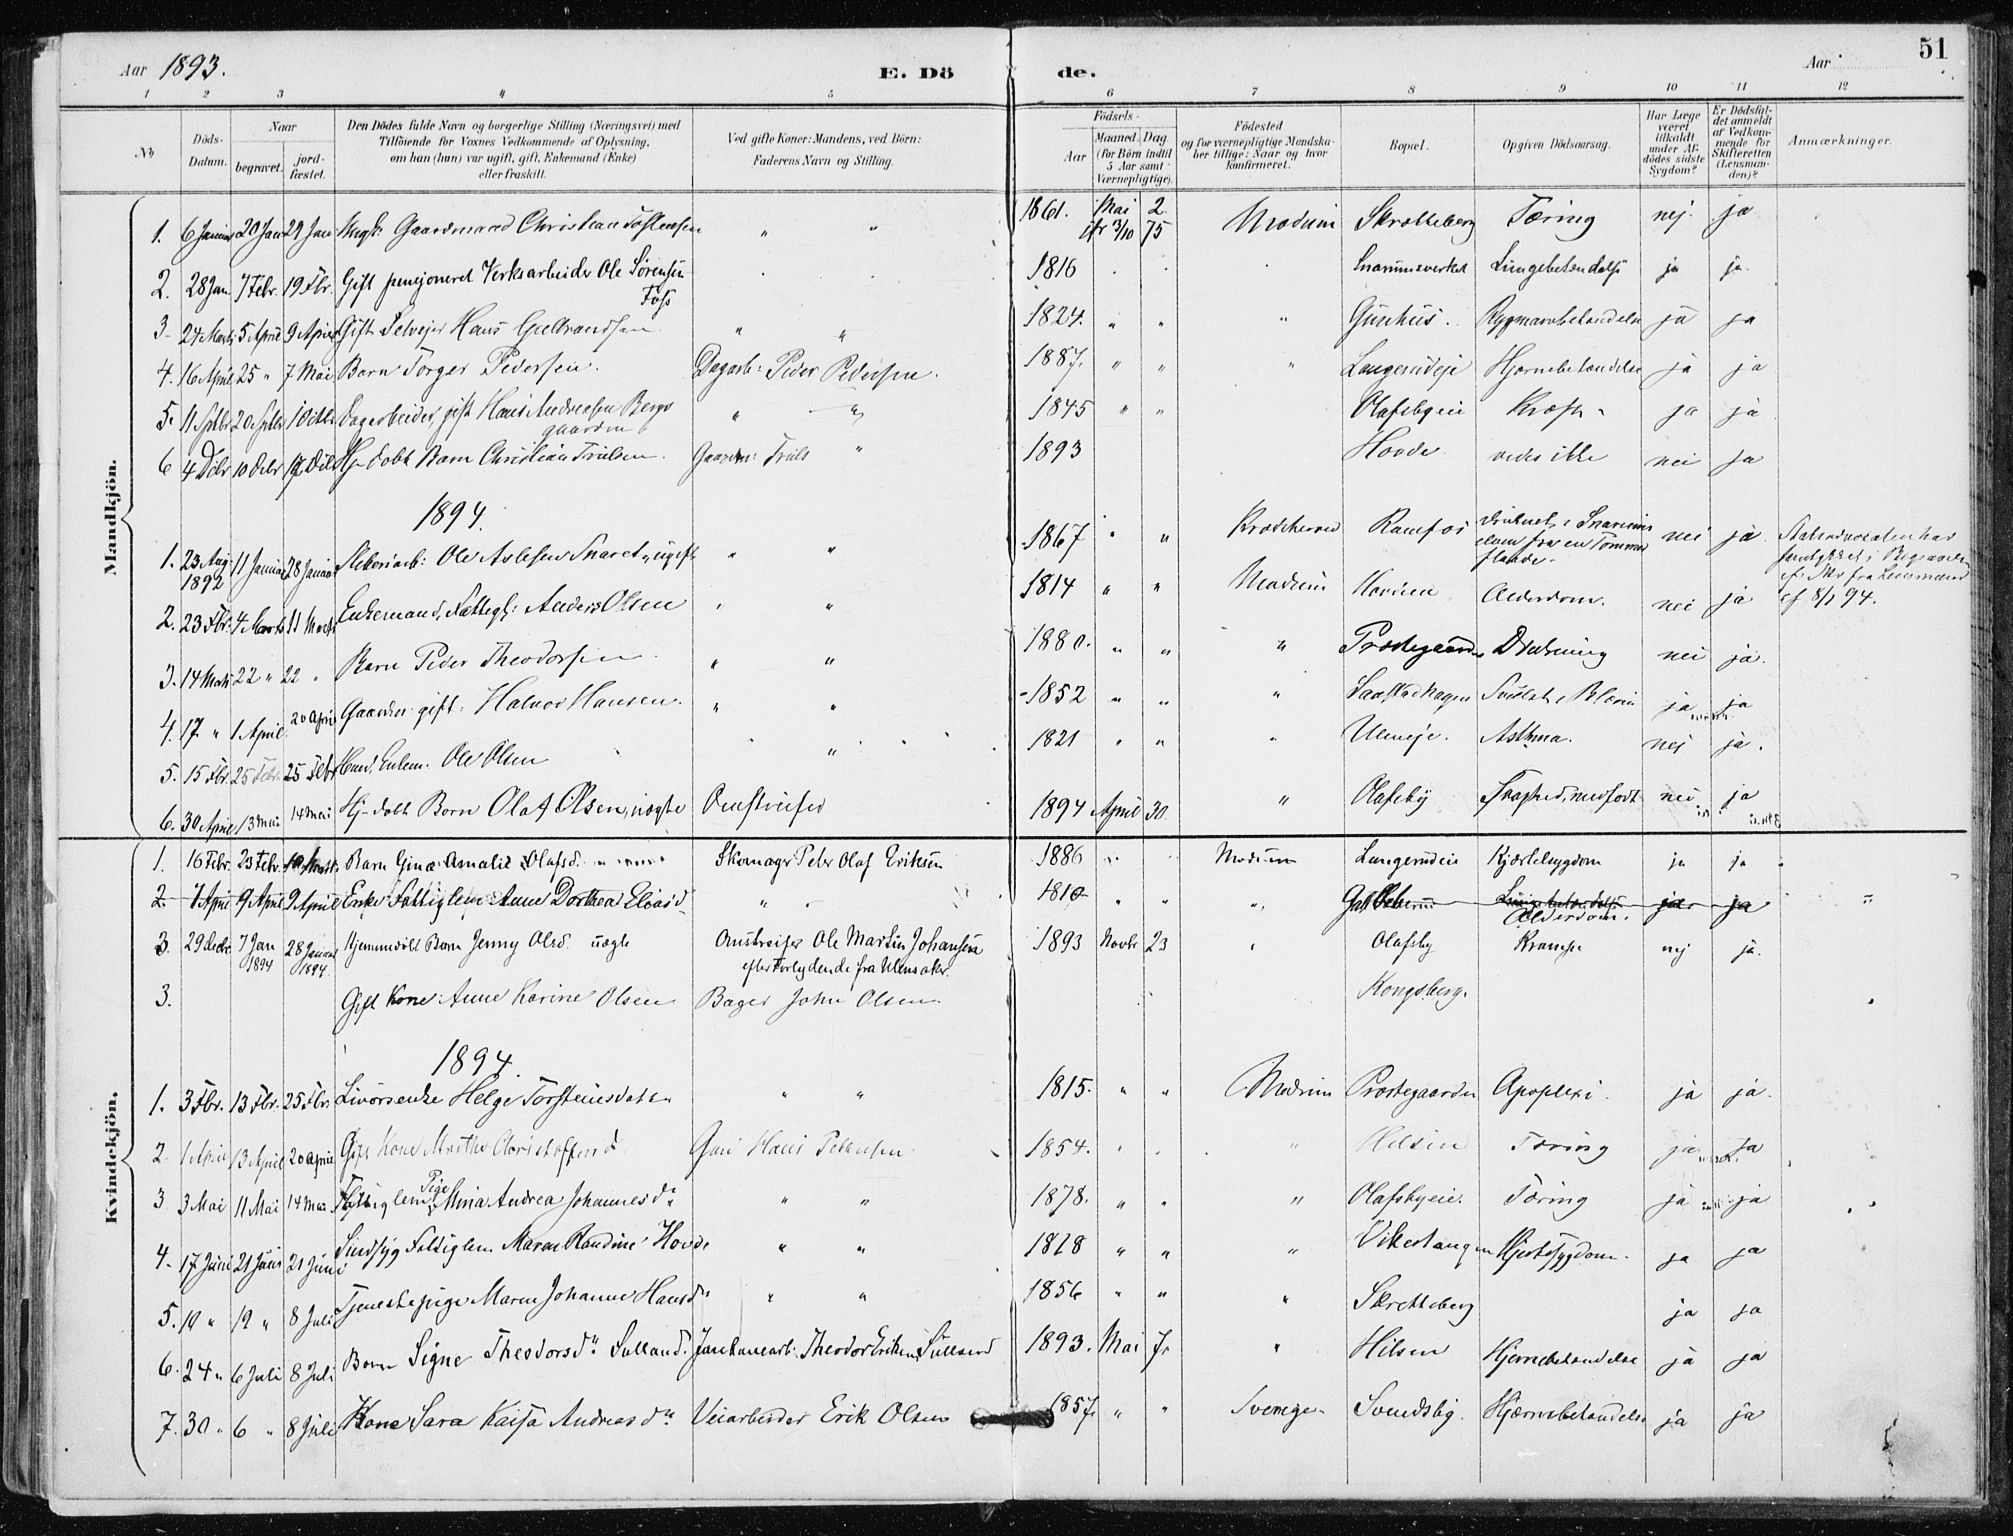 Aar 1893. E. Dö de. Aar 51
1 2 3 4 5 6 7 8 9 10 11 12
No
Döds-Datum.
Naar begravet. jord-fæstet.
Den Dödes fulde Navn og borgerlige Stilling (Næringsvei) med
Tilföiende for Voxnes Vedkommende af Oplysning,
om han (hun) var ugift, gift, Enkemand (Enke)
eller fraskilt.
Ved gifte Koner: Mandens, ved Börn:
Faderens Navn og Stilling.
Födsels-
Aar Maaned. Dag.
(for Börn indtil
5 Aar samt
Værnepligtige).
Födested
og for værnepligtige Mandska-
ber tillige: Naar og hvor
konfirmeret.
Bopæl.
Opgiven Dödsaarsag.
Har Læge
været
tilkaldt
under Af-
dödes sidste
Sygdom?
Er Dödsfal-
det anmeldt
af Vedkom-
mende for
Skifteretten
(Lensman-
den)?
Anmærkninger.
Mandkjön.
1. 6 Januar 20 Jan 29 Jan Ungk: Gaardmand Christian Tostensen " " 1861. Mai 2. Modum Skrotteberg Tæring nej. ja
3/10 75
2. 28 Jan. 7 Febr. 19 Fbr. Gift pensjoneret Verksarbeider Ole Sörensen 1816 Snarumsverket Lungebetændelse ja ja.
Foss
3. 24 Marts 5 April 9 April Gift Selvejer Hans Gulbrandsen " " 1824. " " " Gunhus. Rygmarvbetændelse ja ja
4. 16 April 25 " 7 Mai Barn Torger Pedersen. Dagarb: Peder Pedersen. 1887. " " " Langerudeje Hjernebetændelse ja ja
5. 11 Sptbr 20 Sptbr 1 Octbr Dagarbeider, gift Hans Andreasen Bergs " " 1845 " " Olafsbyeie Kræft ja ja
gaarden
6 4 Debr 10 Debr 17 Debr Hj-döbt Barn Christian Trulsen. Gaardbr: Truls " 1893 Hovde vides ikke nei ja
1894.
1. 23 Aug 1892 11 Januar 28 Januar Ole Aslesen Snaret, ugift " " 1867 " " Krødsherred Ramfos druknet i Snarums
elven fra en Tømmer
flaade. nei ja.
fra Lensmand
af 8/1 94.
2. 23 Fbr. 4 Marts 11 Marts Enkemand, Fattigl: Anders Olsen " " 1814 " " Modum Alderdom. nei ja
3. 14 Marts 22 " 22 " Barn Peder Theodorsen " " 1880. " " " Præstegaarden Drukning nei ja.
4. 17 " 1 April 20 April Gaardbr. gift: Halvor Hansen. " " 1852 " " " ja ja
5. 15 Fbr. 25 Febr. 25 Febr Enkem. Ole Olsen " 1821 " " " Ulleneje. Asthma. nej ja.
6. 30 April 13 Mai 14 Mai Hj-döbt Barn Olaf Olsen, uægte Omstreifer 1894 April 30. " Olafsby Svaghed, medfödt nei ja
Kvindekjön.
1. 16 Febr. 23 Febr. Marts Barn Gina Amalie Olafsd. Skomager Peter Olaf Eriksen 1886 " " Modum Langerudeie Kjertelsygdom ja ja
2. 1 April 9 April 9 April Enke Fattiglem Anne Dorthea Eliasd " " 1810 " " " Lungebetændelse ja ja "
Alderdom.
3. 29 Decbr. 7 Jan 1894 28 Januar 1894. Hjemmedöbt Barn Jenny Olsd. uægte Omstreifer Ole Martin Johansen 1893 Novbr 23 " Olafsby Krampe nej ja.
efter Forlydende fra Ullensaker.
3. Gift Kone Anne Karine Olsen Bager John Olsen Kongsberg.
1894.
1. 3 Fbr. 13 Fbr. 25 Fbr. Livörsenke Helge Torstensdatter " " 1815. " " Modum Præstegaarden Apoplexi. ja ja.
2 1 April 13 April 20 April Gift Kone Marthe Christoffersd Hans Petersen 1854. " " " Hilsen Tæring ja ja
3 3 Mai 11 Mai 14 Mai Fattiglem Pige Mina Andrea Johannesdr. " " 1878. " " " Olafsbyeie. Tæring ja ja
4. 17 Juni 21 Juni 21 Juni Sindsyg Fattiglem Maren Randine Hovde " " 1818 " " " Vikestangen Hjertesygdom. ja ja
5. 10 " 19 " 8 Juli Tjenestepige Maren Johanne Hansdr " " 1856 " " " Skrotteberg ja ja
6. 24 " 6 Juli 8 Juli Barn Signe Theodorsdr. Sulland. Jernbanearb. Theodor Eriksen Sulland 1893. Mai 7. " Hilsen Hjernebetændelse ja ja
7. 30 " 6 " 8 Juli Kone Sara Kaisa Andreasdr. Veiarbeider Erik Olsen 1857. " " Sverige. Svendsby. Hjernebetændelse ja ja